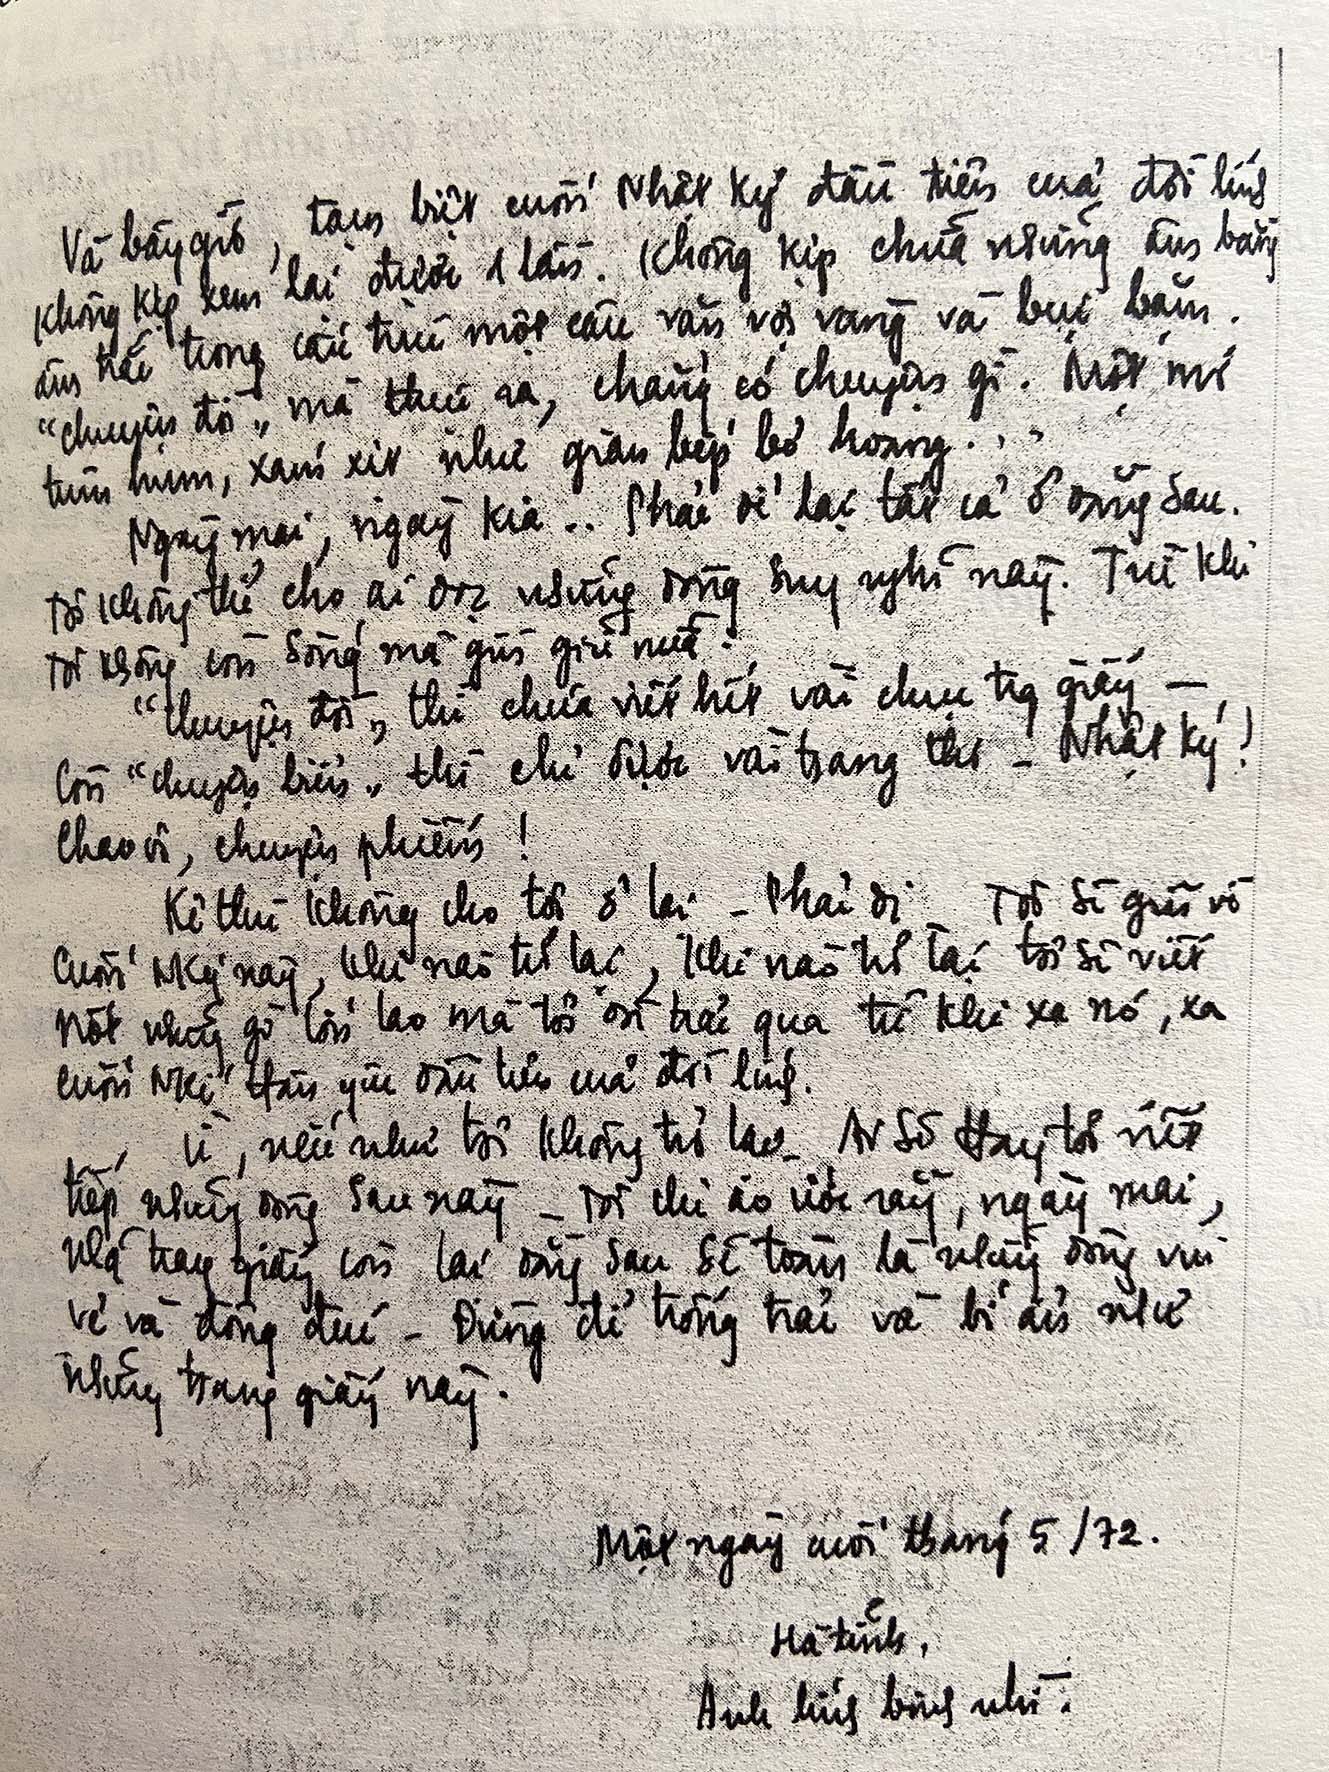 Và bây giờ, tạm biệt cuốn Nhật ký đầu tiên của đời lính
Không kịp xem lại được 1 lần. Không kịp chữa những âm bằng
âm trắc trong cấu trúc một câu văn vội vàng và bụi bặm.
"chuyện đời" mà thực ra, chẳng có chuyện gì. Một mớ
tùm hum, xám xịt như giàn bếp bỏ hoang...
Ngày mai, ngày kia.. Phải để lại tất cả ở đằng sau.
Tôi không thể cho ai đọc những dòng suy nghĩ này. Trừ khi
tôi không còn sống mà gìn giữ nữa.
"Chuyện đời" thì chưa viết hết vài chục tờ giấy —
Còn "chuyện biển" thì chỉ được vài trang thơ - Nhật ký!
Chao ôi, chuyện phiếm!
Kẻ thù không cho tôi ở lại - Phải đi - Tôi sẽ gửi về
cuốn NKý này, khi nào trở lại, khi nào trở lại tôi sẽ viết
nốt những gì lớn lao mà tôi đã trải qua từ khi xa nó, xa
cuốn NKí thân yêu đầu tiên của đời lính.
Ừ, nếu như tôi không trở lại - Ai sẽ thay tôi viết
tiếp những dòng sau này - Tôi chỉ ao ước rằng, ngày mai,
những trang giấy còn lại đằng sau sẽ toàn là những dòng vui
vẻ và đông đúc - Đừng để trống trải và bí ẩn như
những trang giấy này.
Một ngày cuối tháng 5/72.
Hà tĩnh.
Anh lính binh nhì.